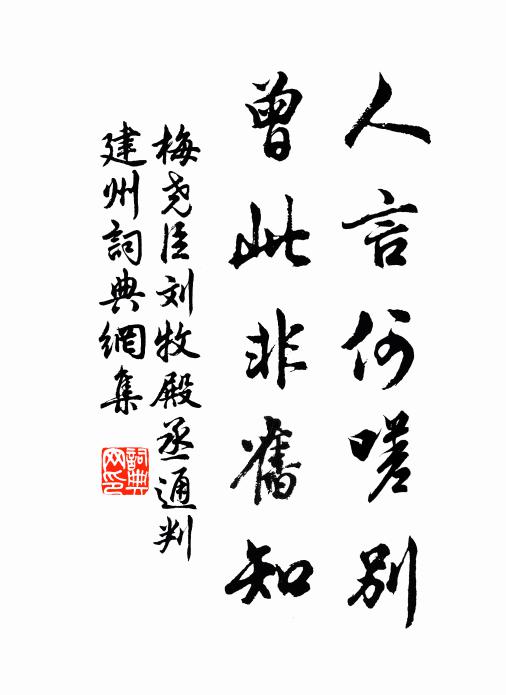 人言何嗟別
曾此非舊知
梅尧臣刘牧殿丞通判
建州詞典網集
詞典网印